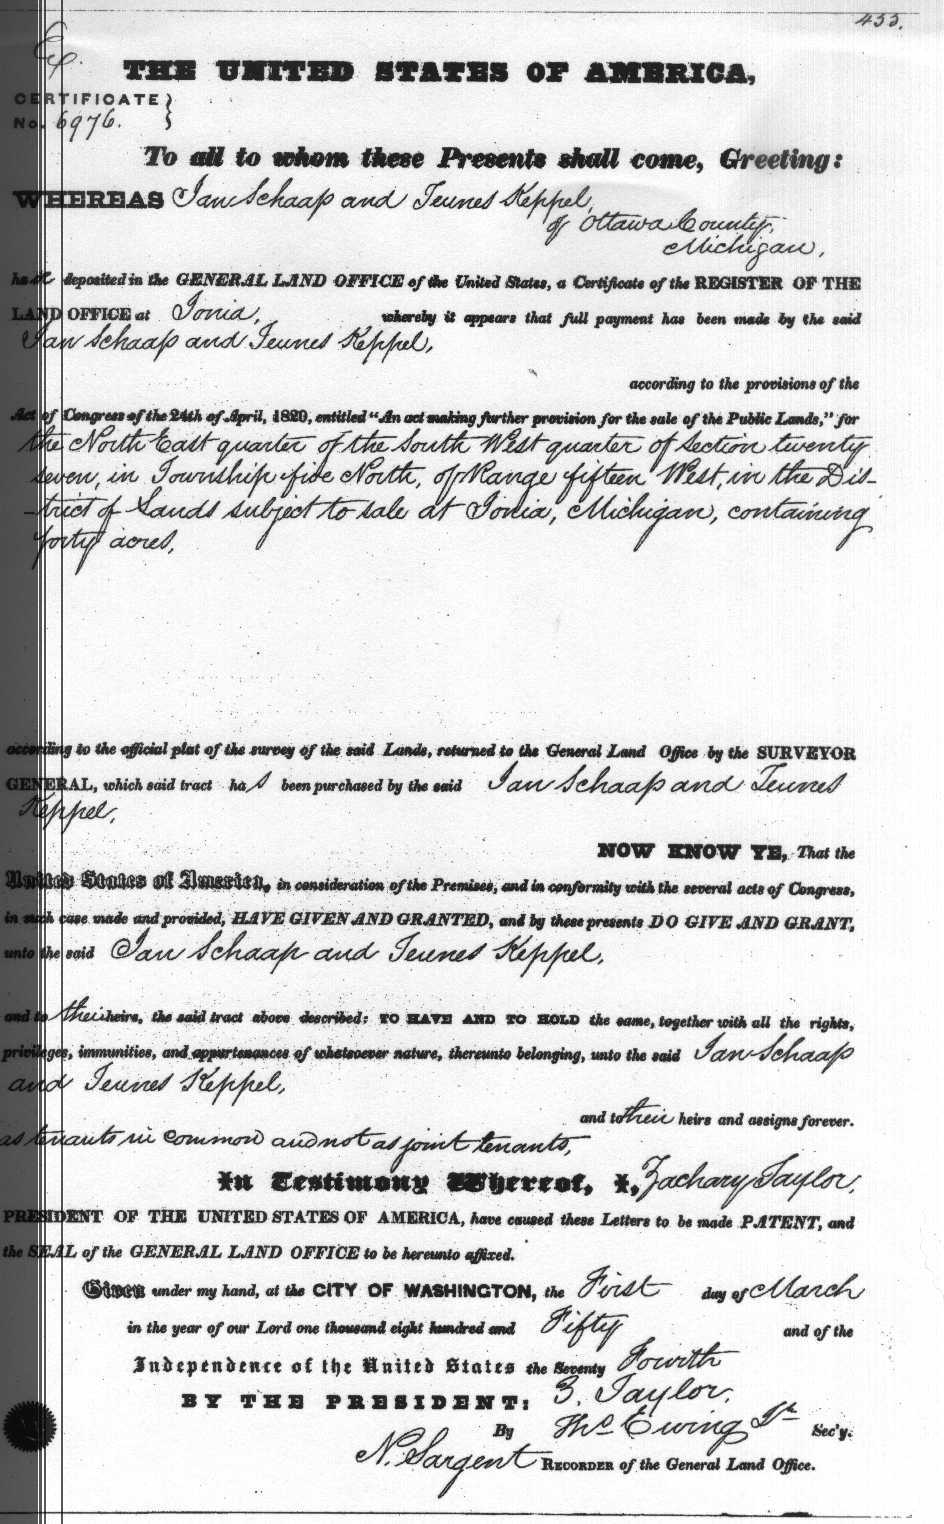 433.
Ex.
THE UNITED STATES OF AMERICA,
CERTIFICATE }
No. 6976. }
To all to whom these Presents shall come, Greeting:
WHEREAS Jan Schaap and Teunes Keppel,
of Ottawa County,
Michigan,
have deposited in the GENERAL LAND OFFICE of the United States, a Certificate of the REGISTER OF THE
LAND OFFICE at Ionia, whereby it appears that full payment has been made by the said
Jan Schaap and Teunes Keppel,
according to the provisions of the
Act of Congress of the 24th of April, 1820, entitled “An act making further provision for the sale of the Public Lands,” for
the North East quarter of the South West quarter of section twenty
seven, in Township five North, of Range fifteen West, in the Dis-
-trict of Lands subject to sale at Ionia, Michigan, containing
forty acres,
according to the official plat of the survey of the said Lands, returned to the General Land Office by the SURVEYOR
GENERAL, which said tract has been purchased by the said Jan Schaap and Teunes
Keppel,
NOW KNOW YE, That the
United States of America, in consideration of the Premises, and in conformity with the several acts of Congress,
in such case made and provided, HAVE GIVEN AND GRANTED, and by these presents DO GIVE AND GRANT,
unto the said Jan Schaap and Teunes Keppel,
and to their heirs, the said tract above described: TO HAVE AND TO HOLD the same, together with all the rights,
privileges, immunities, and appurtenances of whatsoever nature, thereunto belonging, unto the said Jan Schaap
and Teunes Keppel,
and to their heirs and assigns forever.
as tenants in common and not as joint tenants,
In Testimony Whereof, I, Zachary Taylor,
PRESIDENT OF THE UNITED STATES OF AMERICA, have caused these Letters to be made PATENT, and
the SEAL of the GENERAL LAND OFFICE to be hereunto affixed.
Given under my hand, at the CITY OF WASHINGTON, the First day of March
in the year of our Lord one thousand eight hundred and Fifty and of the
Independence of the United States the Seventy Fourth
BY THE PRESIDENT: Z. Taylor.
By Tho. Ewing Jr. Sec'y.
N. Sargent RECORDER of the General Land Office.